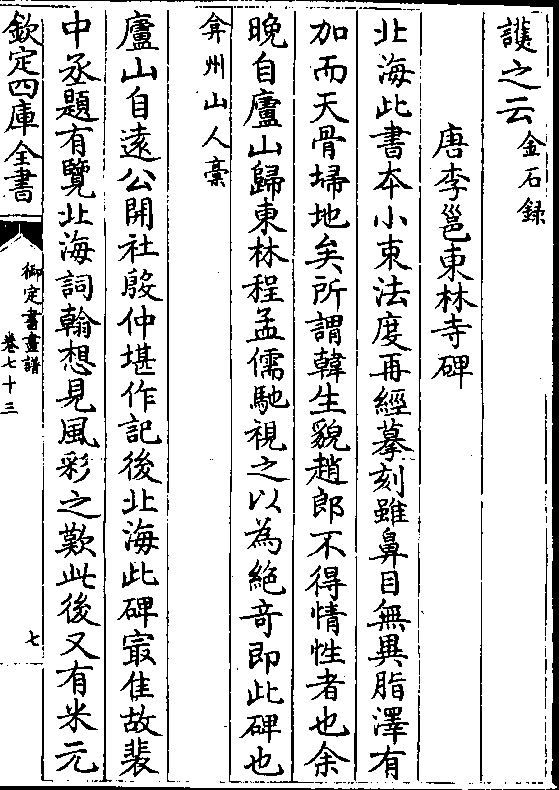 譔之云金石録
唐李邕東林寺碑
北海此書本小束法度再經摹刻雖鼻目無異脂澤有
加而天骨埽地矣所謂韓生貌趙郎不得情性者也余
晩自廬山歸東林程孟儒馳視之以為絶竒即此碑也
弇州山人稾
廬山自遠公開社殷仲堪作記後北海此碑㝡佳故裴
中丞題有覽北海詞翰想見風彩之歎此後又有米元
欽定四庫全書
御定書畫譜
卷七十三
七